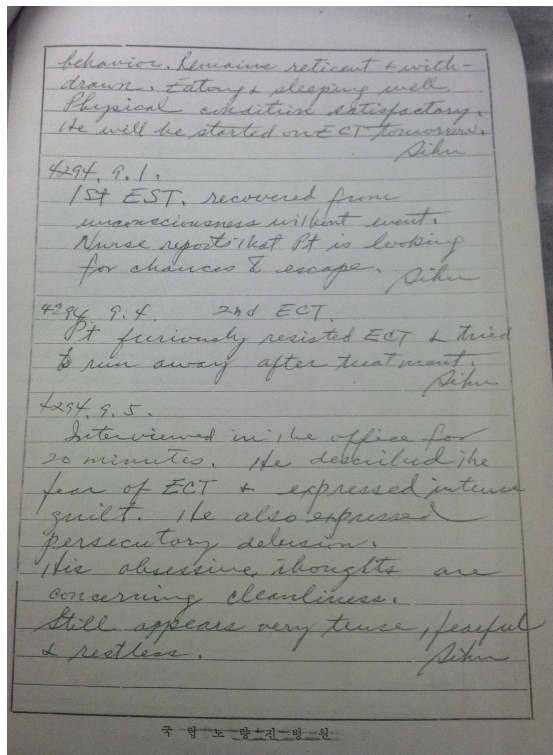 behavior. Remains reticent & with-
drawn. Eating & sleeping well.
Physical condition satisfactory.
He will be started on ECT tomorrow.
4294. 9. 1.
1st EST. recovered from
unconsciousness without event.
Nurse reports that Pt is looking
for chances to escape.
4294 9. 4. 2nd ECT.
Pt furiously resisted ECT & tried
to run away after treatment.
4294. 9. 5.
Interviewed in the office for
20 minutes. He described the
fear of ECT & expressed intense
guilt. He also expressed
persecutory delusion.
His obsessive thoughts are
concerning cleanliness.
Still appears very tense, fearful
& restless.
국립노량진병원